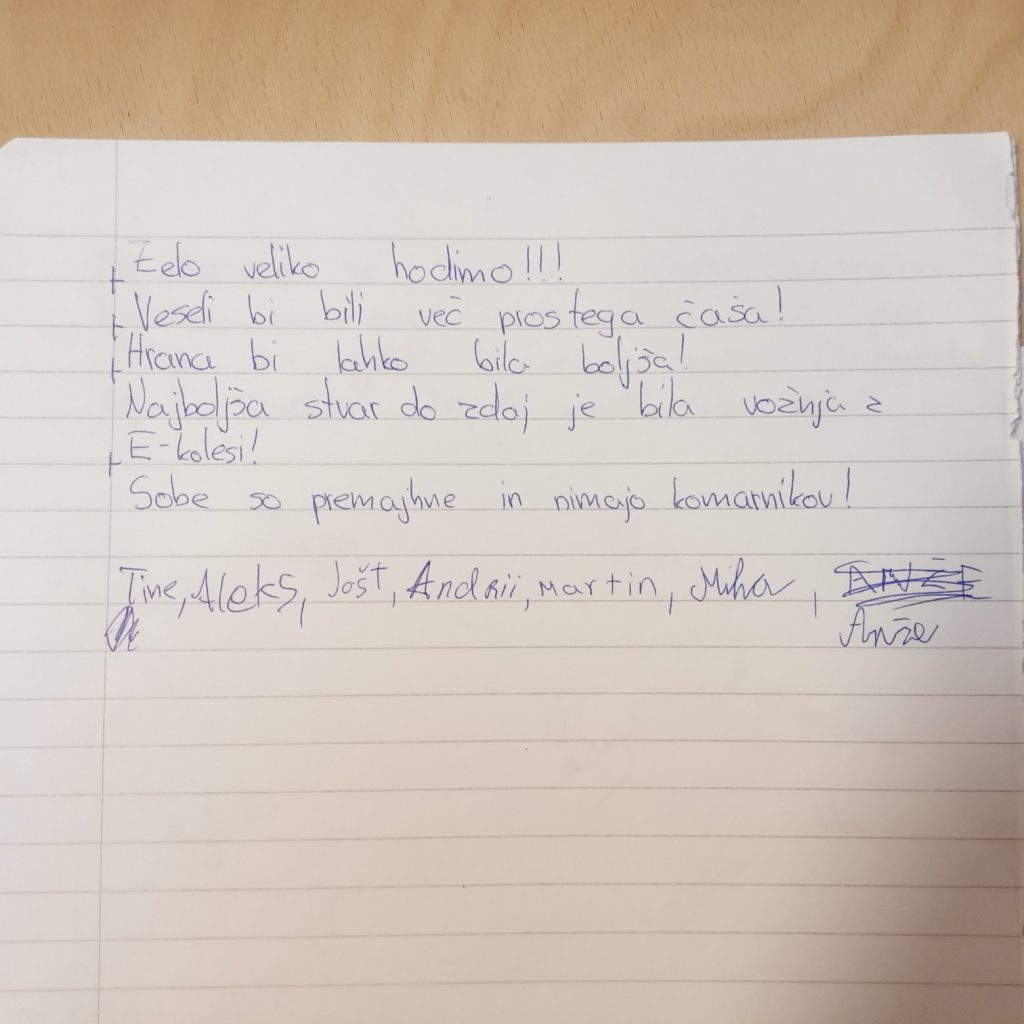 Zelo veliko hodimo!!!
Veseli bi bili več prostega čaša!
Hrana bi lahko bila boljša!
Najboljša stvar do zdaj je bila vožnja z
E-kolesi!
Sobe so premajhne in nimajo komarnikov!
Tine, Aleks, Jošt, Andrii, Martin, Miha, ANŽE
Anže